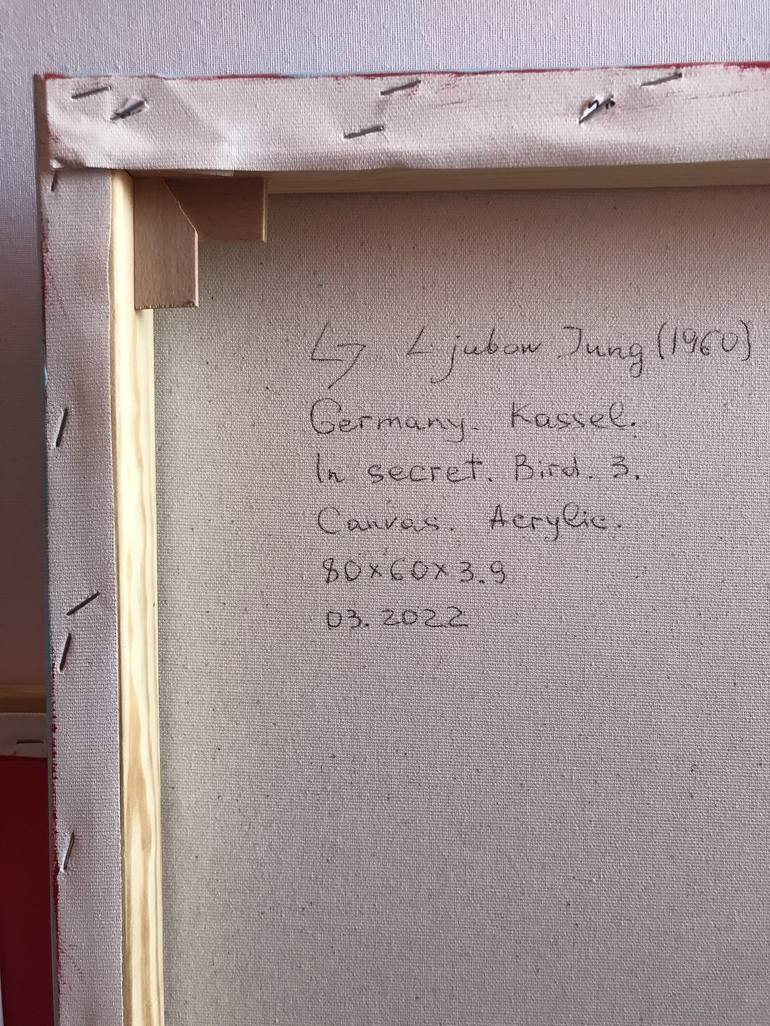 Ljubow Jung (1960)
Germany. Kassel.
In secret. Bird. 3.
Canvas. Acrylic.
80x60x3.9
03.2022